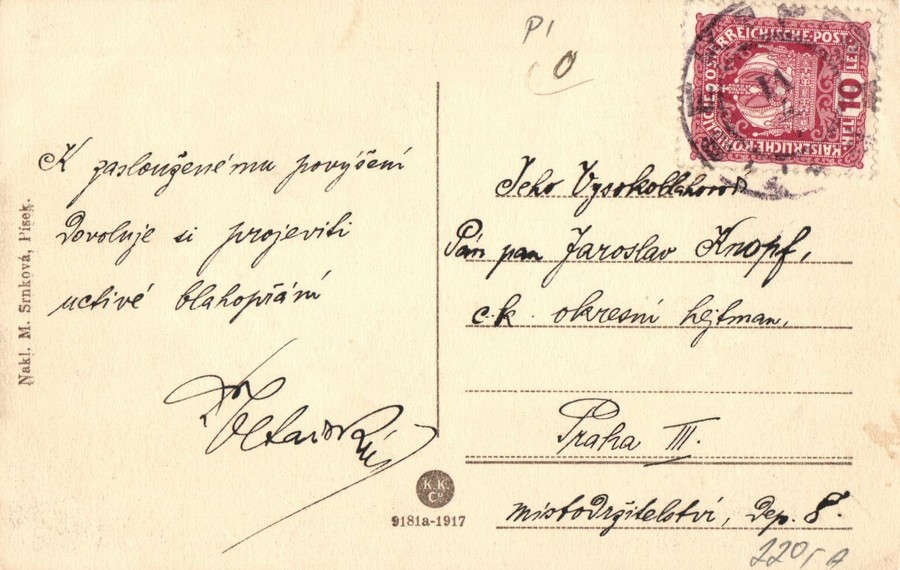 P1
0
KAISERLICHE KÖNIGLICHE ÖSTERREICHISCHE POST
10 HELLER
K zaslouženému povýšení
dovoluje si projeviti
uctivé blahopřání
Jeho Vysokoblahorod
Pán pan Jaroslav Knopf,
c.k. okresní hejtman,
Praha III.
místodržitelství, Dep. 8.
Nakl. M. Srnková, Písek.
K. K.
Co.
9181a-1917
220